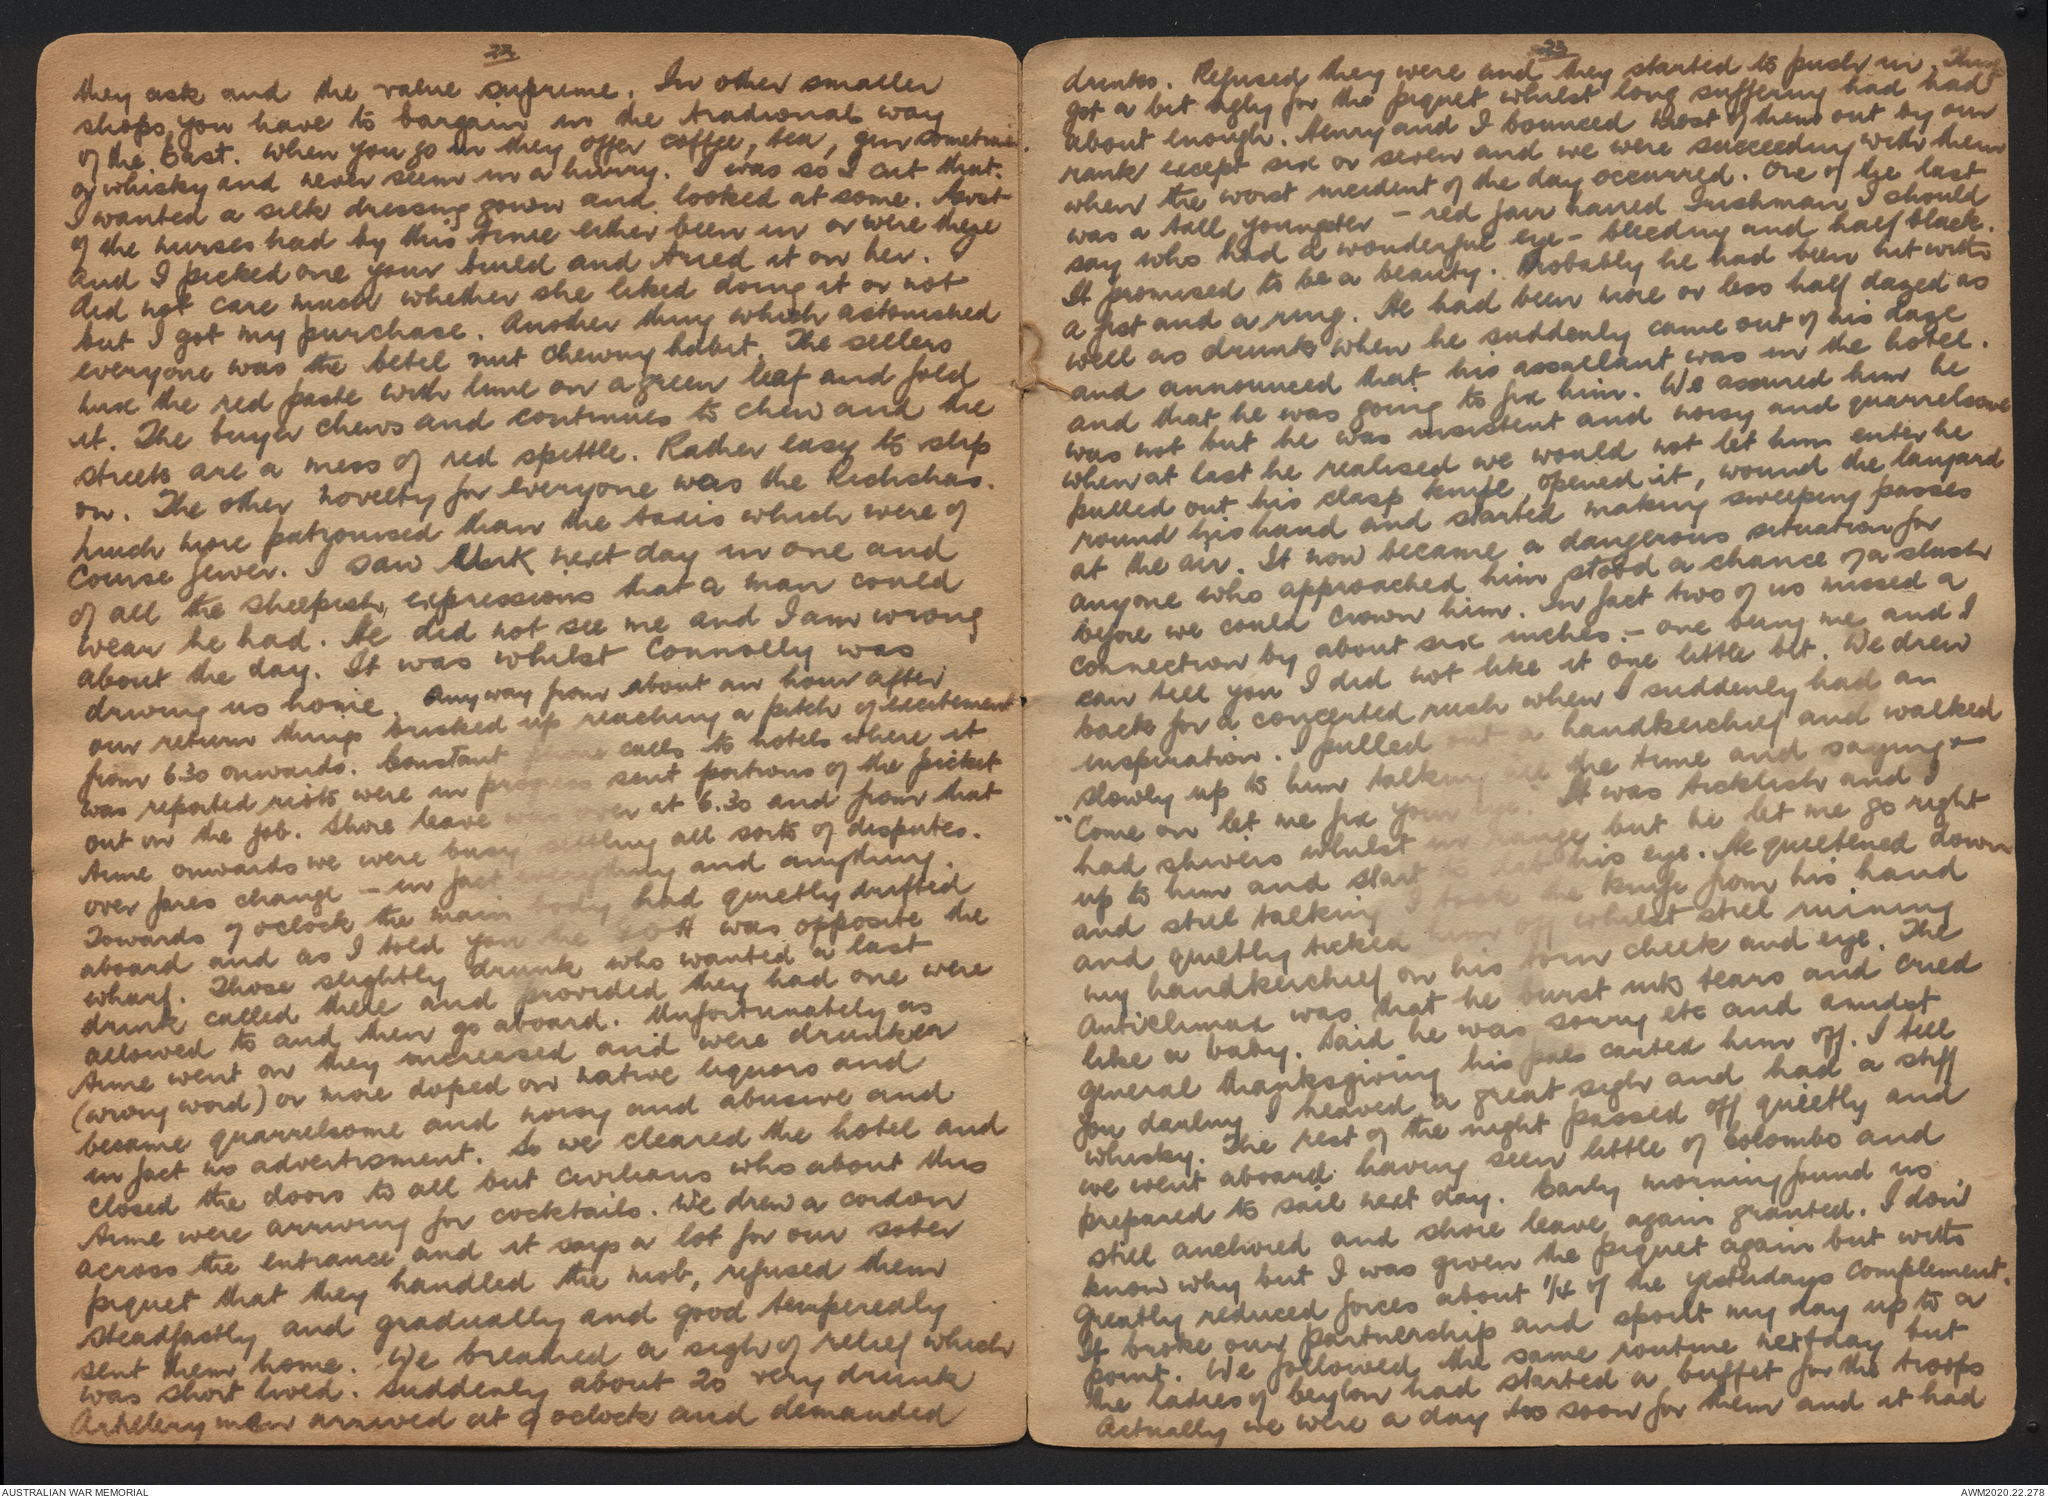 22
they ask and the value supreme. In other smaller
shops, you have to bargain in the tradional way
of the East. When you go in they offer coffee, tea, gin sometimes
or whisky and never seem in a hurry. I was so I cut that.
I wanted a silk dressing gown and looked at some. Most
of the nurses had by this time either been in or were there
and I picked one your build and tried it on her. I
did not care much whether she liked doing it or not
but I got my purchase. Another thing which astonished
everyone was the betel nut chewing habit. The sellers
mix the red paste with lime on a green leaf and fold
it. The buyer chews and continues to chew and the
streets are a mess of red spittle. Rather easy to slip
on. The other novelty for everyone was the Richshas.
much more patronised than the taxis which were of
course fewer. I saw Mark next day in one and
of all the sheepish expressions that a man could
wear he had. He did not see me and I am wrong
about the day. It was whilst Connolly was
driving us home. Anyway from about an hour after
our return things brisked up reaching a pitch of excitement
from 630 onwards. Constant phone calls to hotels where it
was reported riots were in progress sent portions of the picket
out on the job. Shore leave was over at 6.30 and from that
time onwards we were busy settling all sorts of disputes.
over fares change - in fact everything and anything.
Towards 7 oclock the main body had quietly drifted
aboard and as I told you the GOH was opposite the
wharf. Those slightly drunk who wanted a last
drink called there and provided they had one were
allowed to and then go aboard. Unfortunately as
time went on they increased and were drunker
(wrong word) or more doped on native liquors and
became quarrelsome and noisy and abusive and
in fact no advertisment. So we cleared the hotel and
closed the doors to all but civilians who about this
time were arriving for cocktails. We drew a cordon
across the entrance and it says a lot for our sober
piquet that they handled the mob, refused them
steadfastly and gradually and good temperedly
sent them home. We breathed a sigh of relief which
was short lived. Suddenly about 20 very drunk
Artillery men arrived at 9 oclock and demanded
23
drinks. Refused they were and they started to push in. Things
got a bit ugly for the piquet whilst long suffering had had
about enough. Henry and I bounced most of them out by our
rank except six or seven and we were succeeding with them
when the worst incident of the day occurred. One of the last
was a tall youngster - red fair haired Irishman I should
say who had a wonderful eye - bleeding and half black.
It promised to be a beauty. Probably he had been hit with
a fist and a ring. He had been more or less half dazed as
well as drunk when he suddenly came out of his daze
and announced that his assailant was in the hotel.
and that he was going to fix him. We assured him he
was not but he was insistent and noisy and quarrelsome
when at last he realised we would not let him enter he
pulled out his clasp knife, opened it, wound the lanyard
round his hand and started making sweeping passes
at the air. It now became a dangerous situation for
anyone who approached him stood a chance of a slash
before we could crown him. In fact two of us missed a
connection by about six inches. - one being me and I
can tell you I did not like it one little bit. We drew
back for a concerted rush when I suddenly had an
inspiration. I pulled out a handkerchief and walked
slowly up to him talking all the time and saying -
"Come on let me fix your eye." It was ticklish and I
had shivers whilst in range but he let me go right
up to him and start to dab his eye. He quietened down
and still talking I took the knife from his hand
and quietly ticked him off whilst still ruining
my handkerchief on his torn cheek and eye. The
anticlimax was that he burst into tears and cried
like a baby. Said he was sorry etc and amidst
general thanksgiving his pals carted him off. I tell
you darling I heaved a great sigh and had a stiff
whisky. The rest of the night passed off quietly and
we went aboard having seen little of Colombo and
prepared to sail next day. Early morning found us
still anchored and shore leave again granted. I don't
know why but I was given the piquet again but with
greatly reduced forces about 1/4 of the yesterdays complement.
It broke our partnership and spoilt my day up to a
point. We followed the same routine next day but
the ladies of Ceylon had started a buffet for the troops
Actually we were a day too soon for them and it had
AUSTRALIAN WAR MEMORIAL
AWM2020.22.278